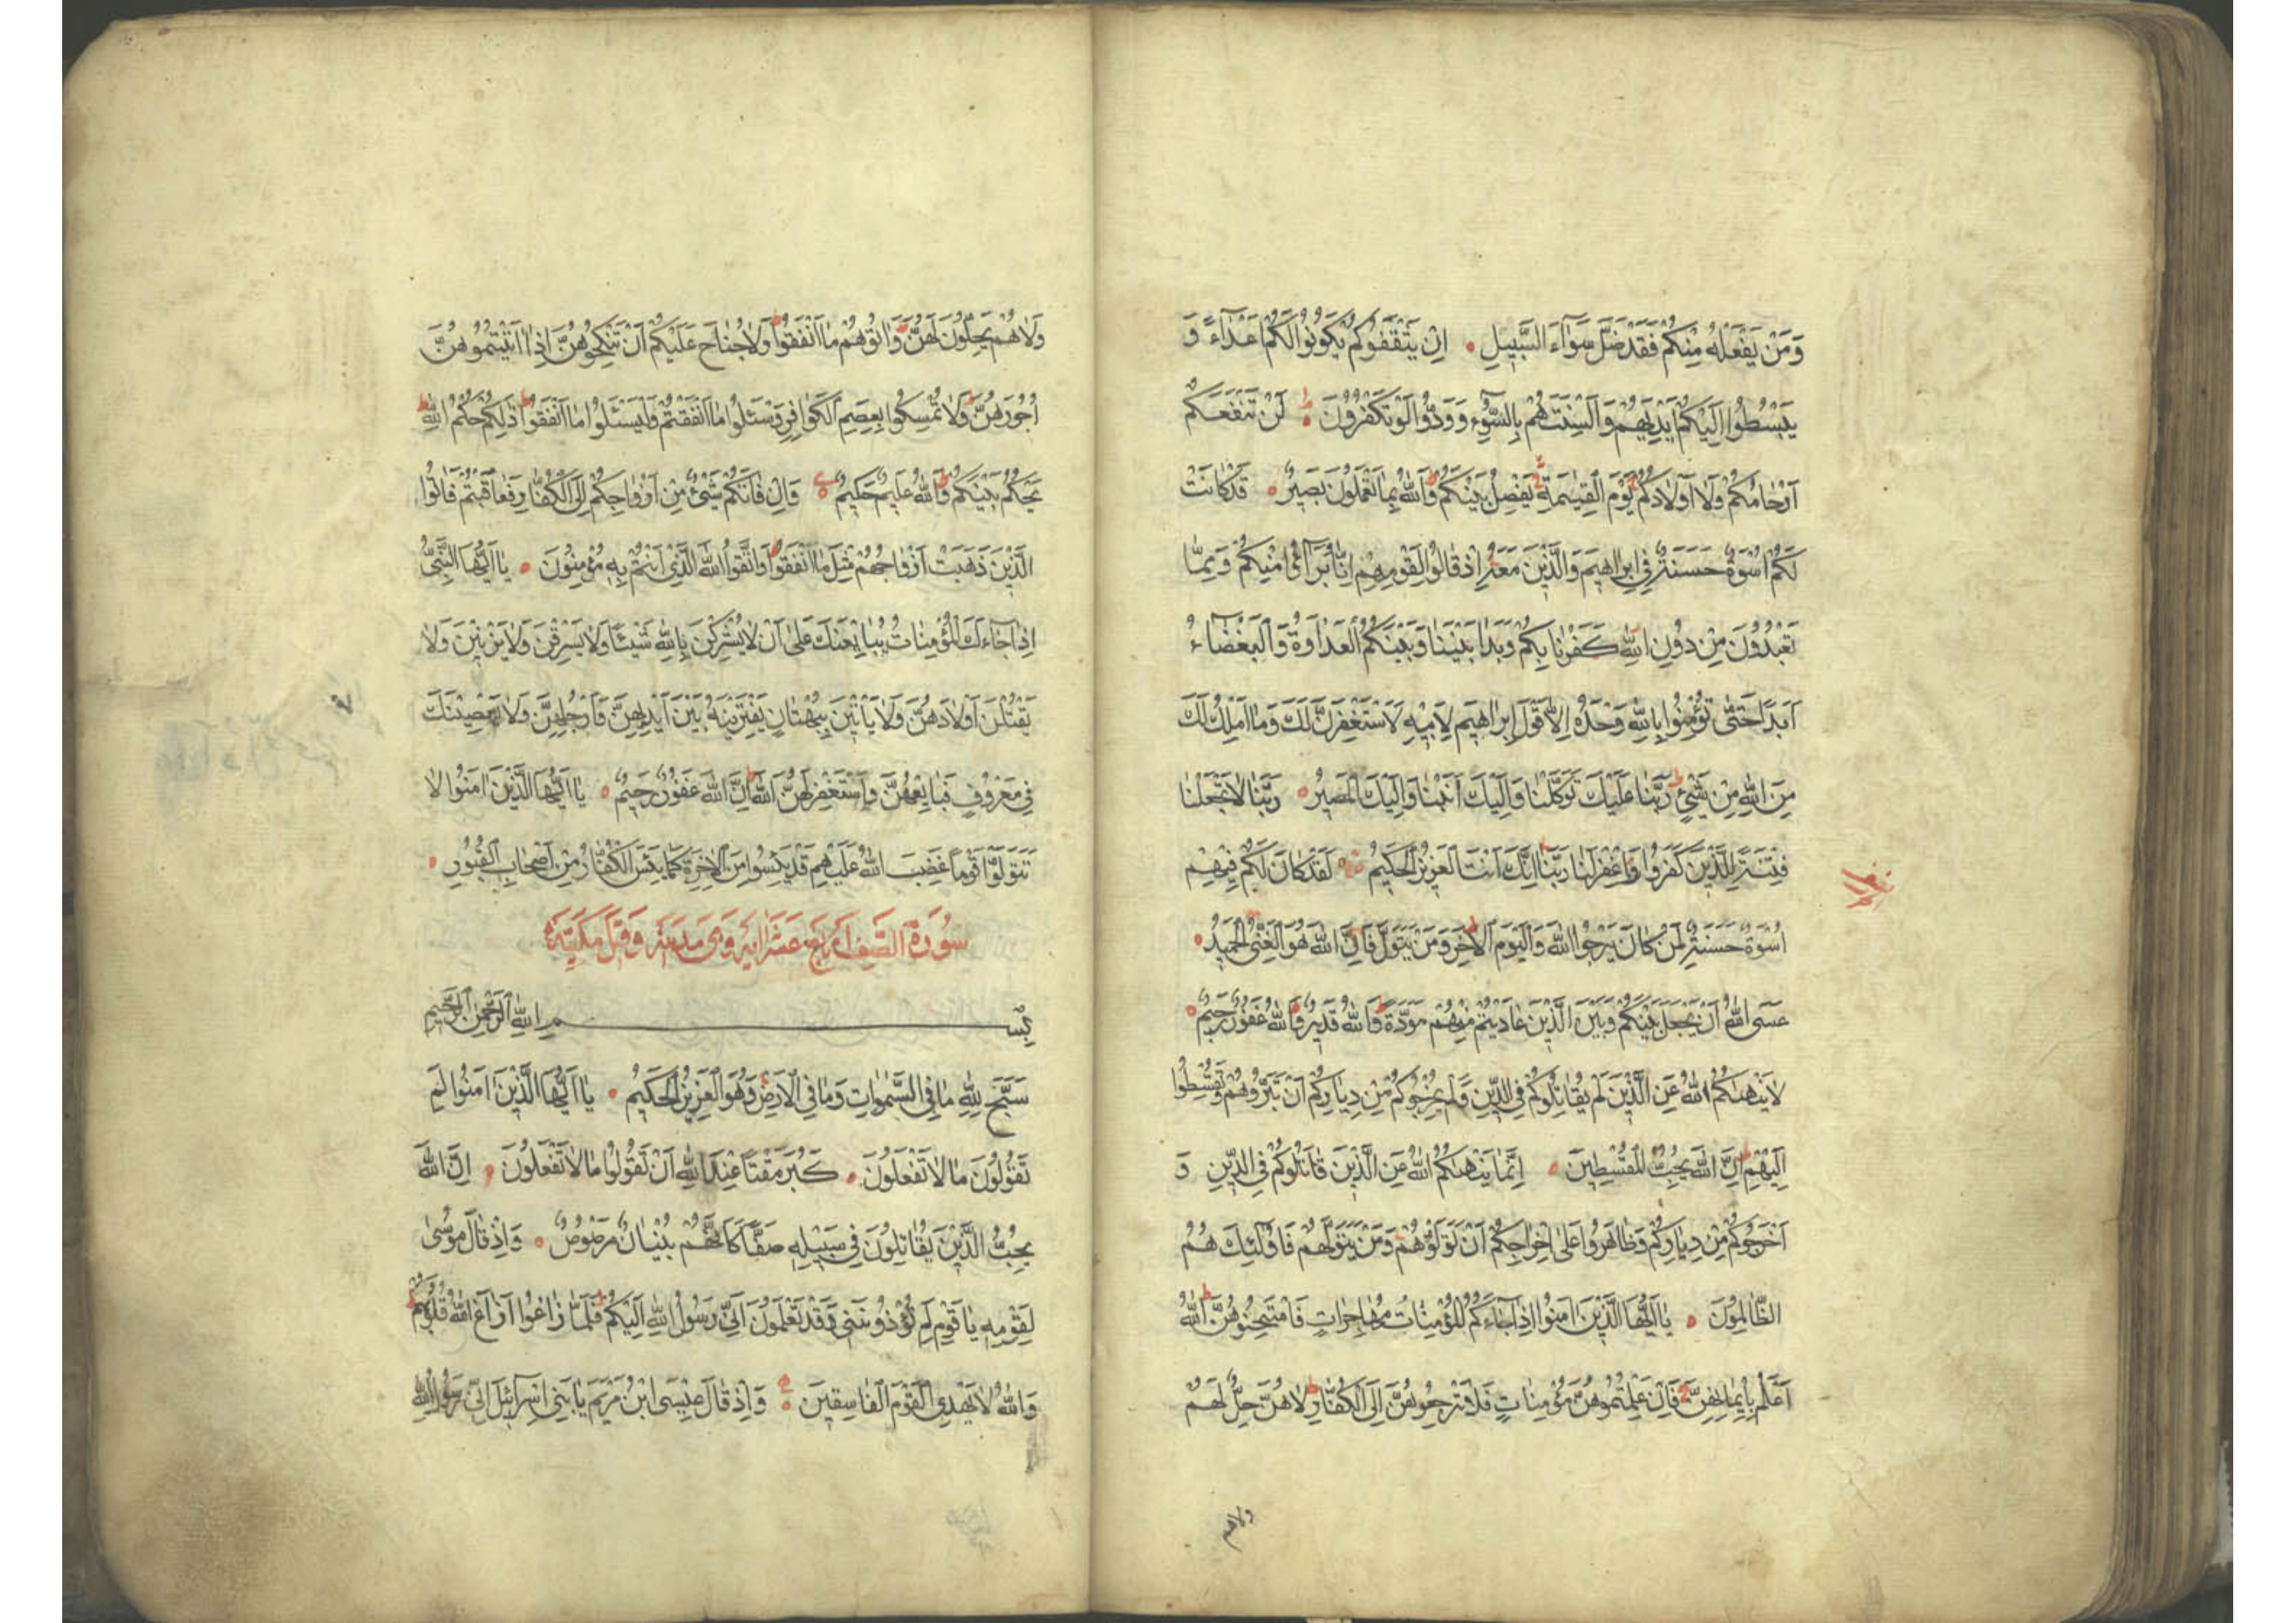 وَمَنْ يَفْعَلْهُ مِنْكُمْ فَقَدْ ضَلَّ سَوَآءَ السَّبِيلِ اِنْ يَثْقَفُوكُمْ يَكُونُوا لَكُمْ اَعْدَآءً وَ
يَبْسُطُوا اِلَيْكُمْ اَيْدِيَهُمْ وَاَلْسِنَتَهُمْ بِالسُّوءِ وَوَدُّوا لَوْ تَكْفُرُونَ لَنْ تَنْفَعَكُمْ
اَرْحَامُكُمْ وَلَا اَوْلَادُكُمْ يَوْمَ الْقِيٰمَةِ يَفْصِلُ بَيْنَكُمْ وَاللّٰهُ بِمَا تَعْمَلُونَ بَصِيرٌ قَدْ كَانَتْ
لَكُمْ اُسْوَةٌ حَسَنَةٌ فِي اِبْرَاهِيمَ وَالَّذِينَ مَعَهُ اِذْ قَالُوا لِقَوْمِهِمْ اِنَّا بُرَآؤُا مِنْكُمْ وَمِمَّا
تَعْبُدُونَ مِنْ دُونِ اللّٰهِ كَفَرْنَا بِكُمْ وَبَدَا بَيْنَنَا وَبَيْنَكُمُ الْعَدَاوَةُ وَالْبَغْضَآءُ
اَبَدًا حَتّٰى تُؤْمِنُوا بِاللّٰهِ وَحْدَهُ اِلَّا قَوْلَ اِبْرَاهِيمَ لِاَبِيهِ لَاَسْتَغْفِرَنَّ لَكَ وَمَا اَمْلِكُ لَكَ
مِنَ اللّٰهِ مِنْ شَيْءٍ رَبَّنَا عَلَيْكَ تَوَكَّلْنَا وَاِلَيْكَ اَنَبْنَا وَاِلَيْكَ الْمَصِيرُ رَبَّنَا لَا تَجْعَلْنَا
فِتْنَةً لِلَّذِينَ كَفَرُوا وَاغْفِرْ لَنَا رَبَّنَا اِنَّكَ اَنْتَ الْعَزِيزُ الْحَكِيمُ لَقَدْ كَانَ لَكُمْ فِيهِمْ
اُسْوَةٌ حَسَنَةٌ لِمَنْ كَانَ يَرْجُوا اللّٰهَ وَالْيَوْمَ الْاٰخِرَ وَمَنْ يَتَوَلَّ فَاِنَّ اللّٰهَ هُوَ الْغَنِيُّ الْحَمِيدُ
عَسَى اللّٰهُ اَنْ يَجْعَلَ بَيْنَكُمْ وَبَيْنَ الَّذِينَ عَادَيْتُمْ مِنْهُمْ مَوَدَّةً وَاللّٰهُ قَدِيرٌ وَاللّٰهُ غَفُورٌ رَحِيمٌ
لَا يَنْهٰىكُمُ اللّٰهُ عَنِ الَّذِينَ لَمْ يُقَاتِلُوكُمْ فِي الدِّينِ وَلَمْ يُخْرِجُوكُمْ مِنْ دِيَارِكُمْ اَنْ تَبَرُّوهُمْ وَتُقْسِطُوا
اِلَيْهِمْ اِنَّ اللّٰهَ يُحِبُّ الْمُقْسِطِينَ اِنَّمَا يَنْهٰىكُمُ اللّٰهُ عَنِ الَّذِينَ قَاتَلُوكُمْ فِي الدِّينِ وَ
اَخْرَجُوكُمْ مِنْ دِيَارِكُمْ وَظَاهَرُوا عَلٰى اِخْرَاجِكُمْ اَنْ تَوَلَّوْهُمْ وَمَنْ يَتَوَلَّهُمْ فَاُولٰئِكَ هُمُ
الظَّالِمُونَ يَا اَيُّهَا الَّذِينَ اٰمَنُوا اِذَا جَاءَكُمُ الْمُؤْمِنَاتُ مُهَاجِرَاتٍ فَامْتَحِنُوهُنَّ اللّٰهُ
اَعْلَمُ بِاِيمَانِهِنَّ فَاِنْ عَلِمْتُمُوهُنَّ مُؤْمِنَاتٍ فَلَا تَرْجِعُوهُنَّ اِلَى الْكُفَّارِ لَا هُنَّ حِلٌّ لَهُمْ
ولاهم
وَلَا هُمْ يَحِلُّونَ لَهُنَّ وَاٰتُوهُمْ مَا اَنْفَقُوا وَلَا جُنَاحَ عَلَيْكُمْ اَنْ تَنْكِحُوهُنَّ اِذَا اٰتَيْتُمُوهُنَّ
اُجُورَهُنَّ وَلَا تُمْسِكُوا بِعِصَمِ الْكَوَافِرِ وَسْئَلُوا مَا اَنْفَقْتُمْ وَلْيَسْئَلُوا مَا اَنْفَقُوا ذٰلِكُمْ حُكْمُ اللّٰهِ
يَحْكُمُ بَيْنَكُمْ وَاللّٰهُ عَلِيمٌ حَكِيمٌ وَاِنْ فَاتَكُمْ شَيْءٌ مِنْ اَزْوَاجِكُمْ اِلَى الْكُفَّارِ فَعَاقَبْتُمْ فَاٰتُوا
الَّذِينَ ذَهَبَتْ اَزْوَاجُهُمْ مِثْلَ مَا اَنْفَقُوا وَاتَّقُوا اللّٰهَ الَّذِي اَنْتُمْ بِهِ مُؤْمِنُونَ يَا اَيُّهَا النَّبِيُّ
اِذَا جَاءَكَ الْمُؤْمِنَاتُ يُبَايِعْنَكَ عَلٰى اَنْ لَا يُشْرِكْنَ بِاللّٰهِ شَيْئًا وَلَا يَسْرِقْنَ وَلَا يَزْنِينَ وَلَا
يَقْتُلْنَ اَوْلَادَهُنَّ وَلَا يَأْتِينَ بِبُهْتَانٍ يَفْتَرِينَهُ بَيْنَ اَيْدِيهِنَّ وَاَرْجُلِهِنَّ وَلَا يَعْصِينَكَ
فِي مَعْرُوفٍ فَبَايِعْهُنَّ وَاسْتَغْفِرْ لَهُنَّ اللّٰهَ اِنَّ اللّٰهَ غَفُورٌ رَحِيمٌ يَا اَيُّهَا الَّذِينَ اٰمَنُوا لَا
تَتَوَلَّوْا قَوْمًا غَضِبَ اللّٰهُ عَلَيْهِمْ قَدْ يَئِسُوا مِنَ الْاٰخِرَةِ كَمَا يَئِسَ الْكُفَّارُ مِنْ اَصْحَابِ الْقُبُورِ
سُورَةُ الصَّفِّ اَرْبَعَ عَشْرَ اٰيَةً وَهِيَ مَدَنِيَّةٌ وَقِيلَ مَكِّيَّةٌ
بِسْمِ اللّٰهِ الرَّحْمٰنِ الرَّحِيمِ
سَبَّحَ لِلّٰهِ مَا فِي السَّمٰوَاتِ وَمَا فِي الْاَرْضِ وَهُوَ الْعَزِيزُ الْحَكِيمُ يَا اَيُّهَا الَّذِينَ اٰمَنُوا لِمَ
تَقُولُونَ مَا لَا تَفْعَلُونَ كَبُرَ مَقْتًا عِنْدَ اللّٰهِ اَنْ تَقُولُوا مَا لَا تَفْعَلُونَ اِنَّ اللّٰهَ
يُحِبُّ الَّذِينَ يُقَاتِلُونَ فِي سَبِيلِهِ صَفًّا كَاَنَّهُمْ بُنْيَانٌ مَرْصُوصٌ وَاِذْ قَالَ مُوسٰى
لِقَوْمِهِ يَا قَوْمِ لِمَ تُؤْذُونَنِي وَقَدْ تَعْلَمُونَ اَنِّي رَسُولُ اللّٰهِ اِلَيْكُمْ فَلَمَّا زَاغُوا اَزَاغَ اللّٰهُ قُلُوبَهُمْ
وَاللّٰهُ لَا يَهْدِي الْقَوْمَ الْفَاسِقِينَ وَاِذْ قَالَ عِيسَى ابْنُ مَرْيَمَ يَا بَنِي اِسْرَآئِيلَ اِنِّي رَسُولُ اللّٰهِ